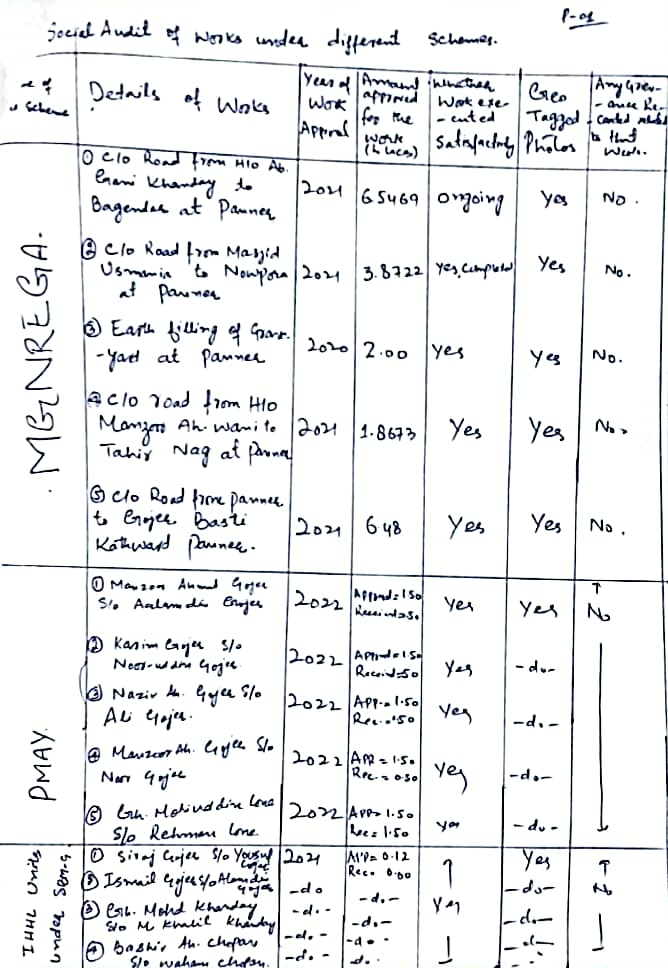 P-01
Social Audit of Works under different Schemes.
e of Scheme | Details of Works | Year of Work Approval | Amount approved for the Work (In lacs) | Whether Work exe-cuted Satisfactorily | Geo Tagged Photos | Any Grev-ance Re-corded related to that Work.
MGNREGA.
① C/o Road from H/o Ab. Gani Khanday to Bagendar at Panner | 2021 | 6.5469 | ongoing | Yes | No.
② C/o Road from Masjid Usmania to Nowpora at Panner | 2021 | 3.8722 | Yes, Completed | Yes | No.
③ Earth filling of Grave-Yard at Panner | 2020 | 2.00 | Yes | Yes | No.
④ C/o road from H/o Manzoor Ah. Wani to Tahir Nag at Panner | 2021 | 1.8673 | Yes | Yes | No.
⑤ C/o Road from panner to Gojer Basti Kathward Panner. | 2021 | 6.48 | Yes | Yes | No.
PMAY.
① Manzoor Ahmad Gojer S/o Aalamdin Gojer | 2022 | Approved=1.50 Received=.50 | Yes | Yes | No
② Karim Gojer S/o Noor-uddin Gojer | 2022 | Approved=1.50 Received=.50 | Yes | -do-
③ Nazir Ah. Gojer S/o Ali Gojer. | 2022 | APP.=1.50 Rec.=.50 | Yes | -do-
④ Manzoor Ah. Gojer S/o Noor Gojer | 2022 | APP = 1.50 Rec. = 0.50 | Yes | -do-
⑤ Gh. Mohiuddin Lone S/o Rehman Lone | 2022 | APP= 1.50 Rec= 1.50 | Yes | -do-
IHHL Units under SBM-G.
① Siraj Gojer S/o Yousuf Gojer | 2021 | APP= 0.12 Rec. 0.00 | Yes | Yes | No
② Ismail Gojer S/o Alamdin Gojer | -do | -do- | -do-
③ Gh. Mohd Khanday S/o M Khalil Khanday | -do- | -do- | -do-
④ Bashir Ah. Chopan S/o Wahab Chopan. | -do- | -do- | -do-